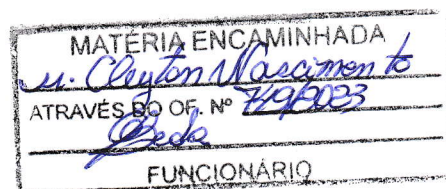 MATÉRIA ENCAMINHADA
Cleyton Nascimento
ATRAVÉS DO OF. Nº 749/2023
FUNCIONÁRIO